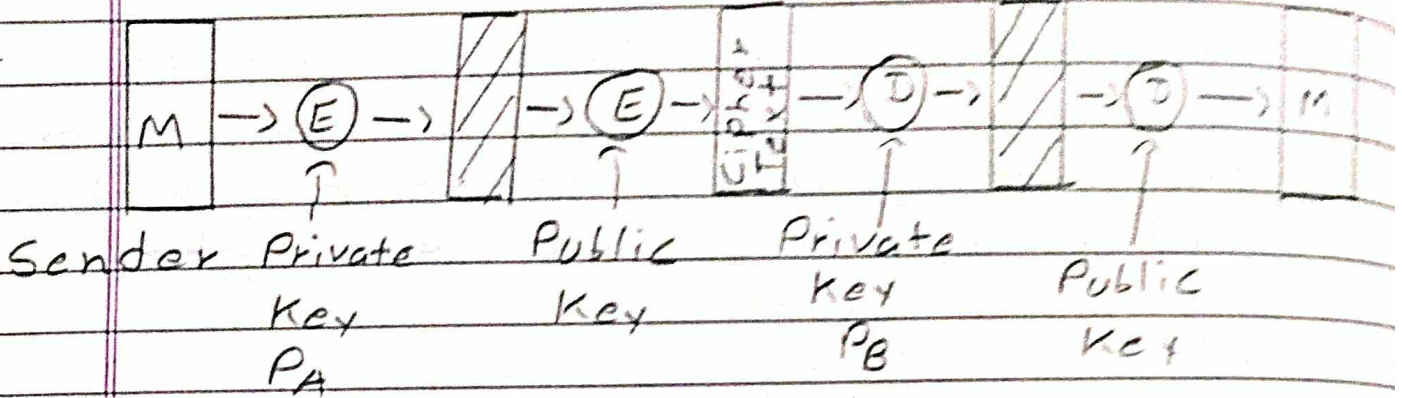 M → E → → E → Cipher Text → D → → D → M
Sender Private Key PA
Public Key
Private Key PB
Public Key